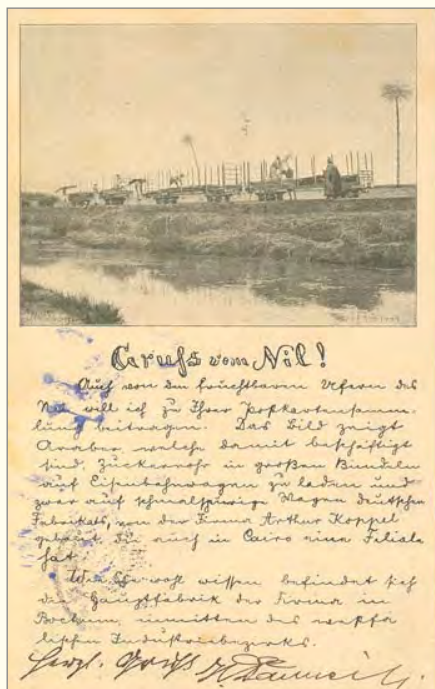 Gruß vom Nil!
Auch von den fruchtbaren Ufern des
Nil will ich zu Ihrer Postkartensamm-
lung beitragen. Das Bild zeigt
Araber welche damit beschäftigt
sind, Zuckerrohr in großen Bündeln
auf Eisenbahnwagen zu laden und
zwar auf schmalspurige Wagen deutschen
Fabrikats, von der Firma Arthur Koppel
gebaut, die auch in Cairo eine Filiale
hat.
Wie Sie wohl wissen befindet sich
die Hauptfabrik der Firma in
Bochum, inmitten des westfä-
lischen Industriebezirks.
Herzl. Gruß